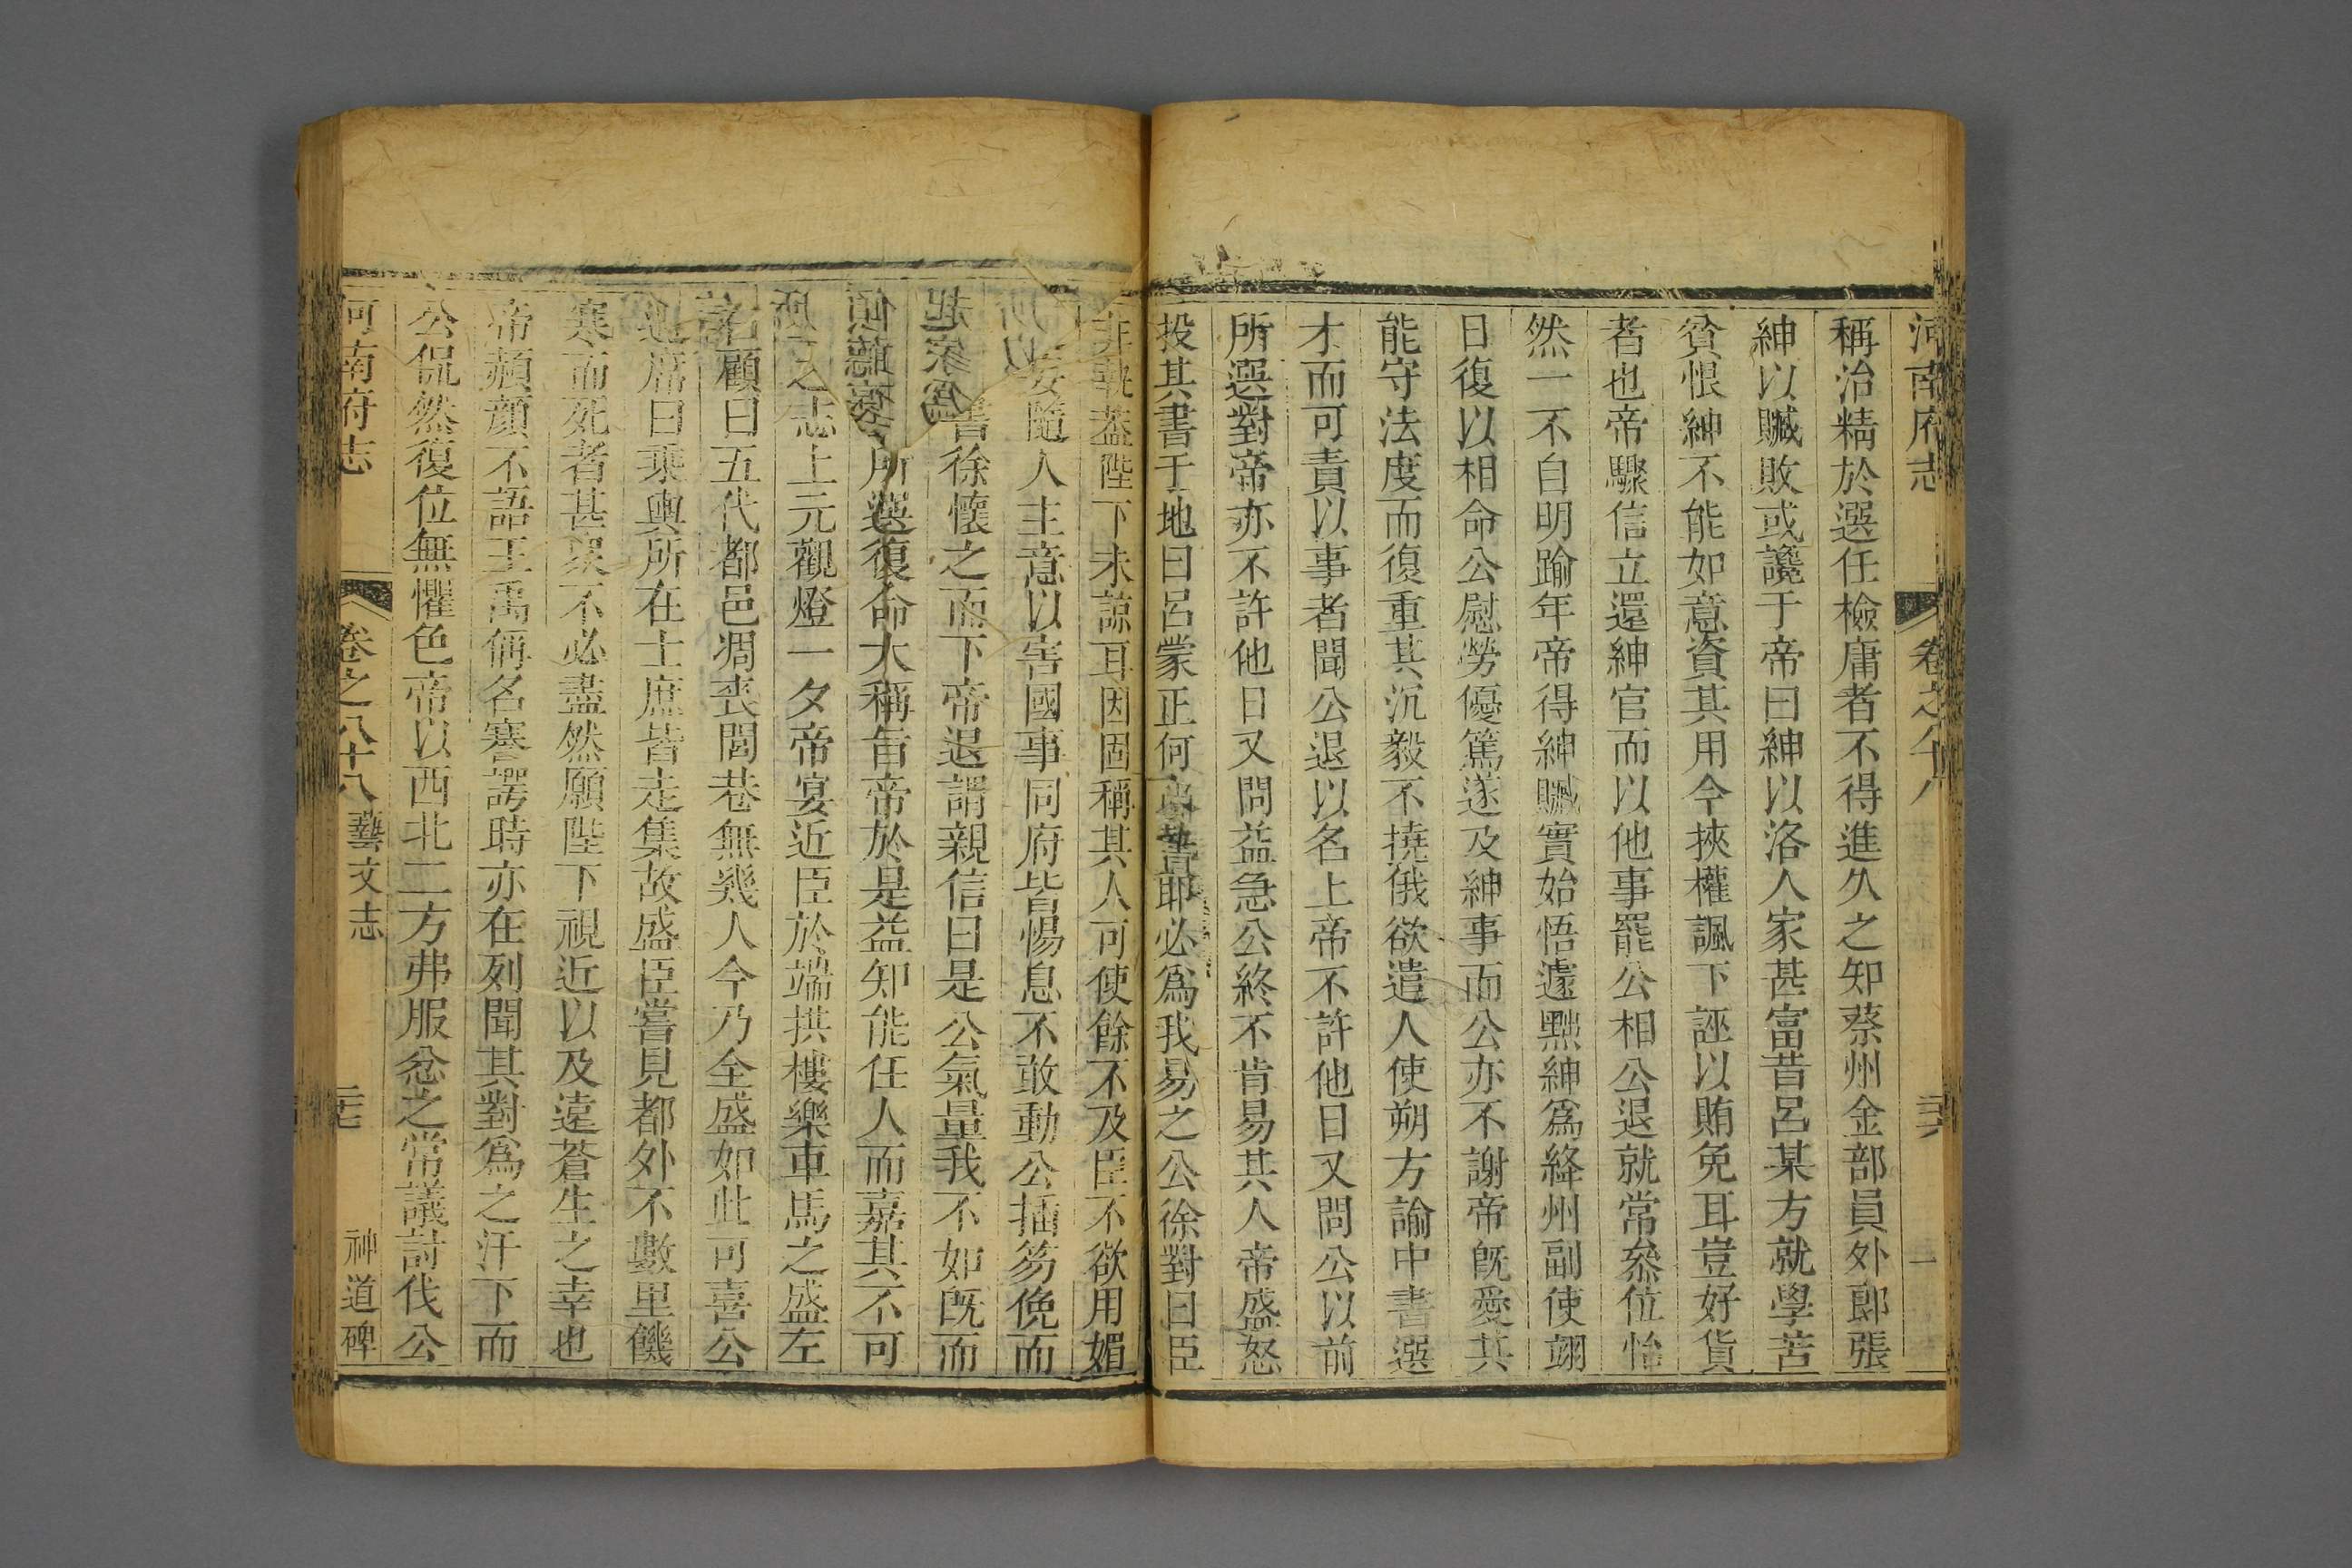 河南府志 卷之八十八 三六
稱治精於選任檢庸者不得進久之知蔡州金部員外郎張
紳以贓敗或讒于帝曰紳以洛人家甚富昔呂某方就學苦
貧恨紳不能如意資其用今挾權諷下誣以賄免耳豈好貨
者也帝驟信立還紳官而以他事罷公相公退就常叅位怡
然一不自明踰年帝得紳贓實始悟遽黜紳爲絳州副使翊
日復以相命公慰勞優篤遂及紳事而公亦不謝帝旣愛其
能守法度而復重其沉毅不撓俄欲遣人使朔方諭中書選
才而可責以事者聞公退以名上帝不許他日又問公以前
所選對帝亦不許他日又問益急公終不肯易其人帝盛怒
投其書于地曰呂蒙正何執書耶必爲我易之公徐對曰臣
非執盖陛下未諒耳因固稱其人可使餘不及臣不欲用媚
妄隨人主意以害國事同府皆惕息不敢動公揷笏俛而
書徐懷之而下帝退謂親信曰是公氣量我不如旣而
所選復命大稱旨帝於是益知能任人而嘉其不可
之志上元觀燈一夕帝宴近臣於端拱樓樂車馬之盛左
右顧曰五代都邑凋喪閭巷無幾人今乃全盛如此可喜公
避席曰乘輿所在士庶皆走集故盛臣嘗見都外不數里饑
寒而死者甚衆不必盡然願陛下視近以及遠蒼生之幸也
帝頳顔不語王禹偁名謇諤時亦在列聞其對爲之汗下而
公侃然復位無懼色帝以西北二方弗服忿之常議討伐公
河南府志 卷之八十八 藝文志 三七 神道碑